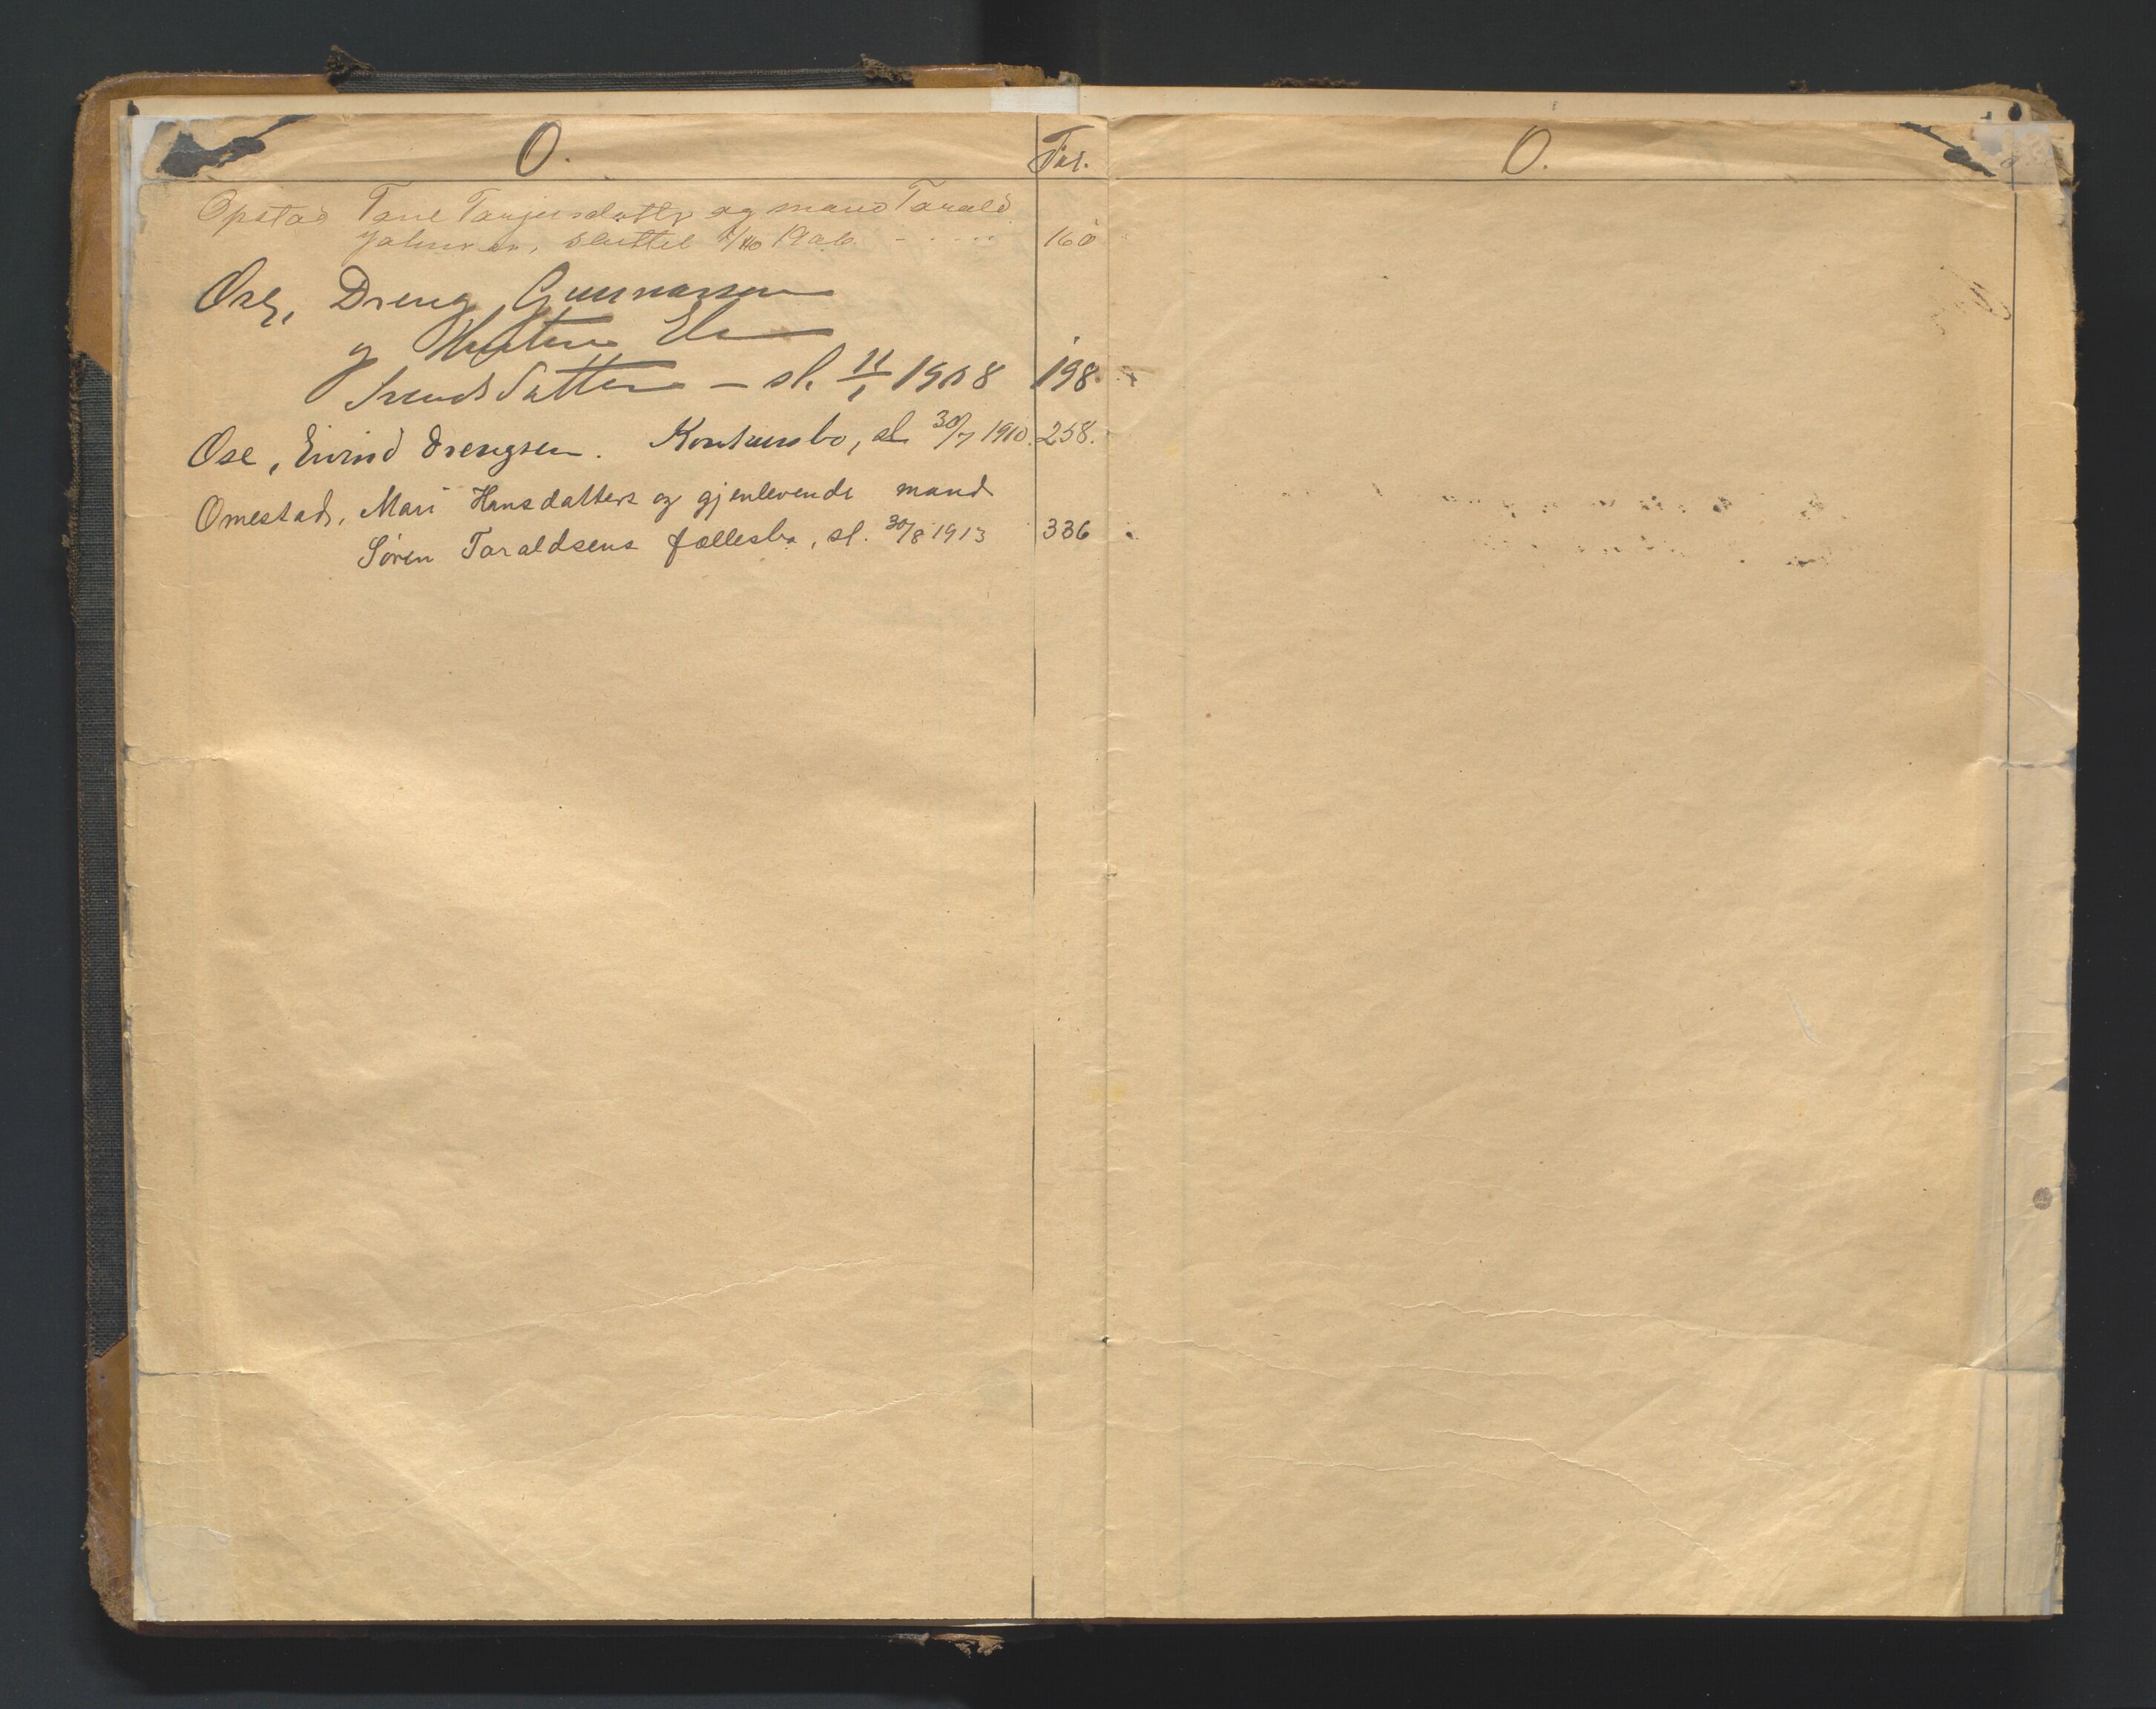 O.
Fol.
Opstad Tone Tarjeisdatter og mand Tarald
sluttet 1906. 160
Ose, Dreng Gunnarsen
og Hustru
datter — sl. 11/1 1908 198
Ose, Eivind Drengsen. Konkursbo, sl 30/7 1910. 258.
Omestad, Mari Hansdatters og gjenlevende mand
Søren Taraldsens fællesbo, sl. 30/8 1913 336
O.